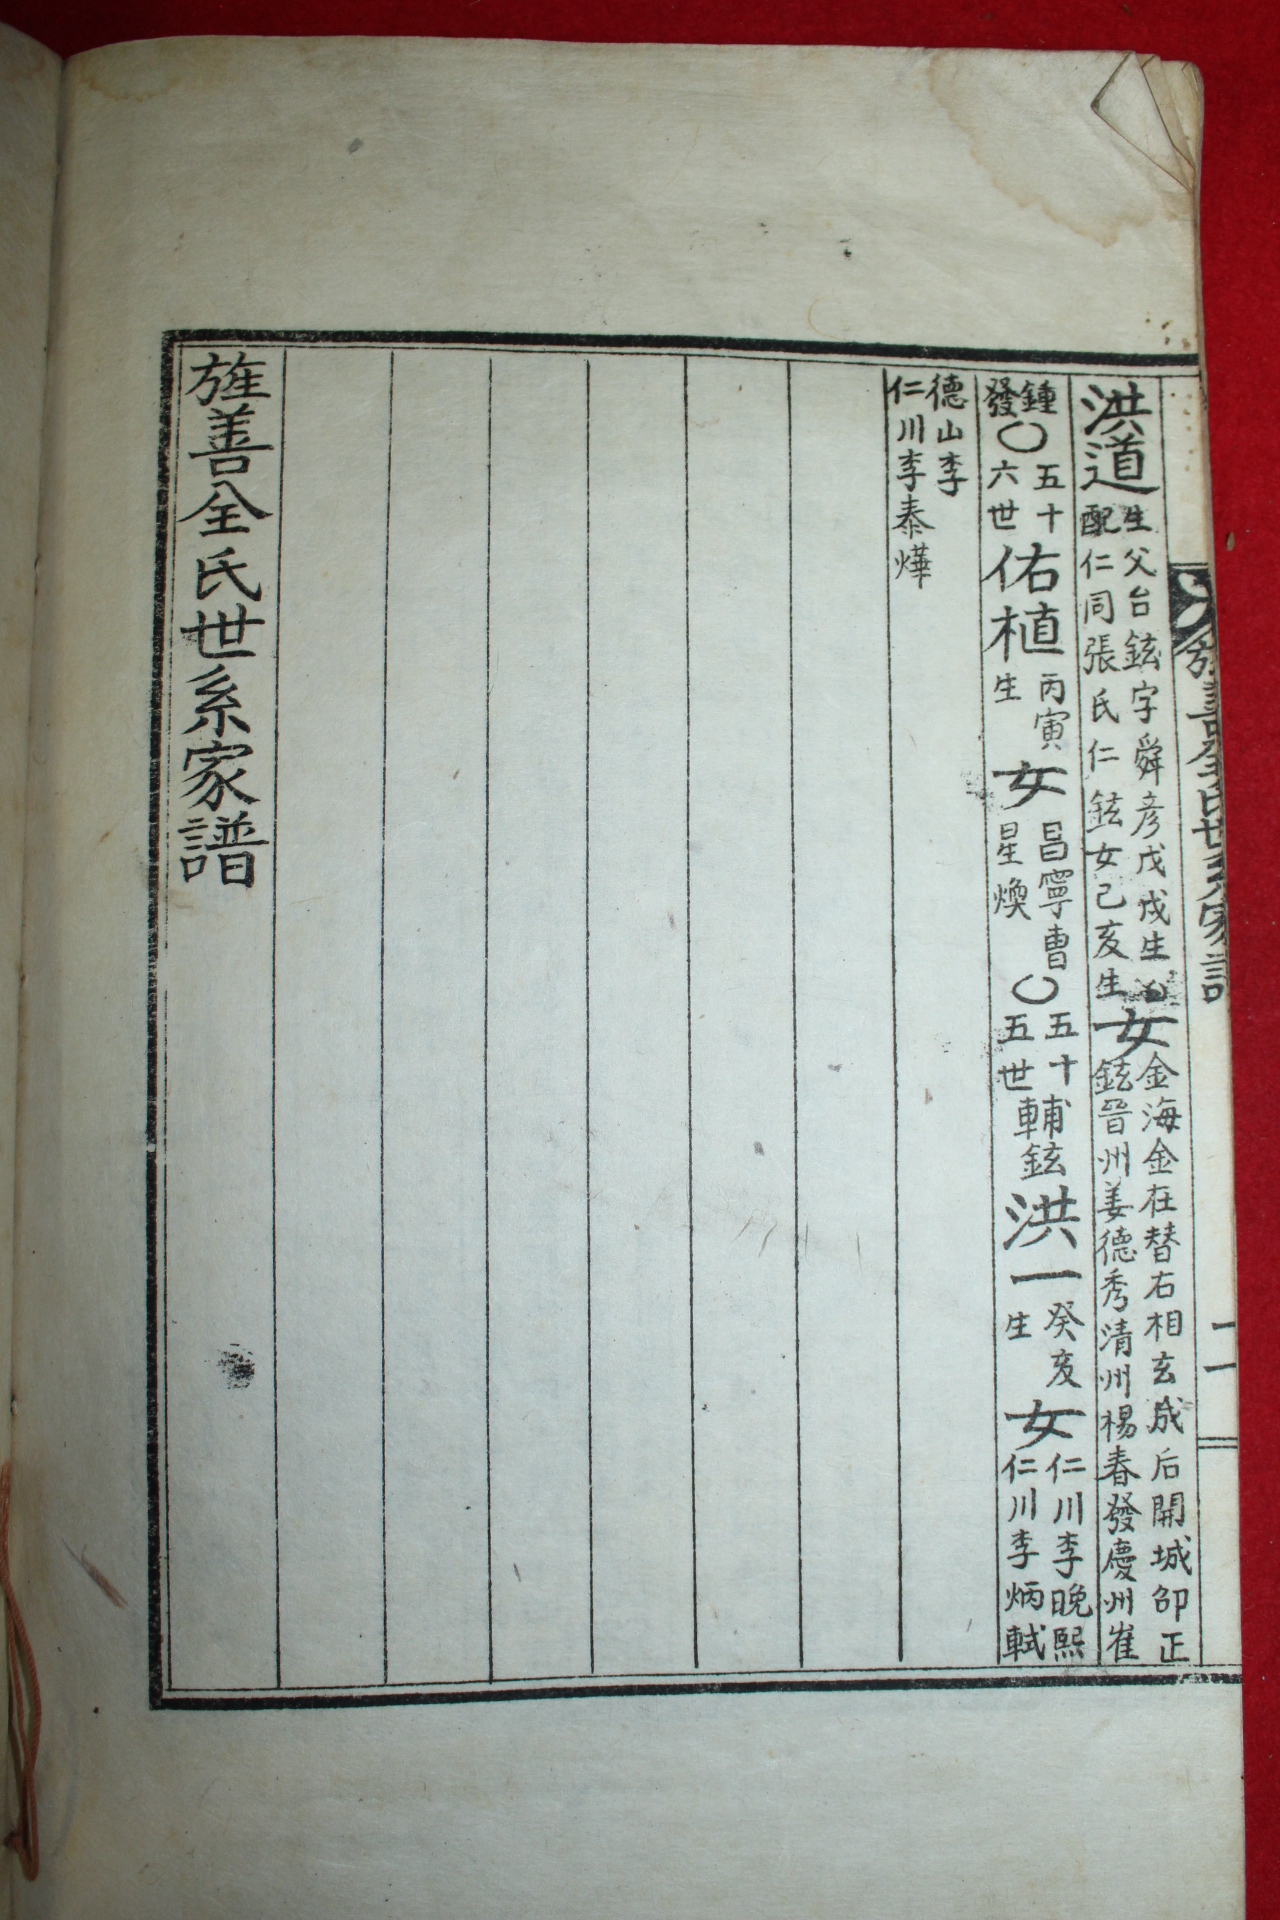 旌善全氏世系家譜 二
洪道
生父台鉉字舜彦戊戌生
配仁同張氏仁鉉女己亥生
女
金海金在替右相玄成后開城邵正
鉉晉州姜德秀清州楊春發慶州崔
鍾
發
〇
五十
六世
佑植
丙寅
生
女
昌寧曹
星煥
〇
五十
五世
輔鉉
洪一
癸亥
生
女
仁川李晩熙
仁川李炳軾
德山李
仁川李泰燁
旌善全氏世系家譜